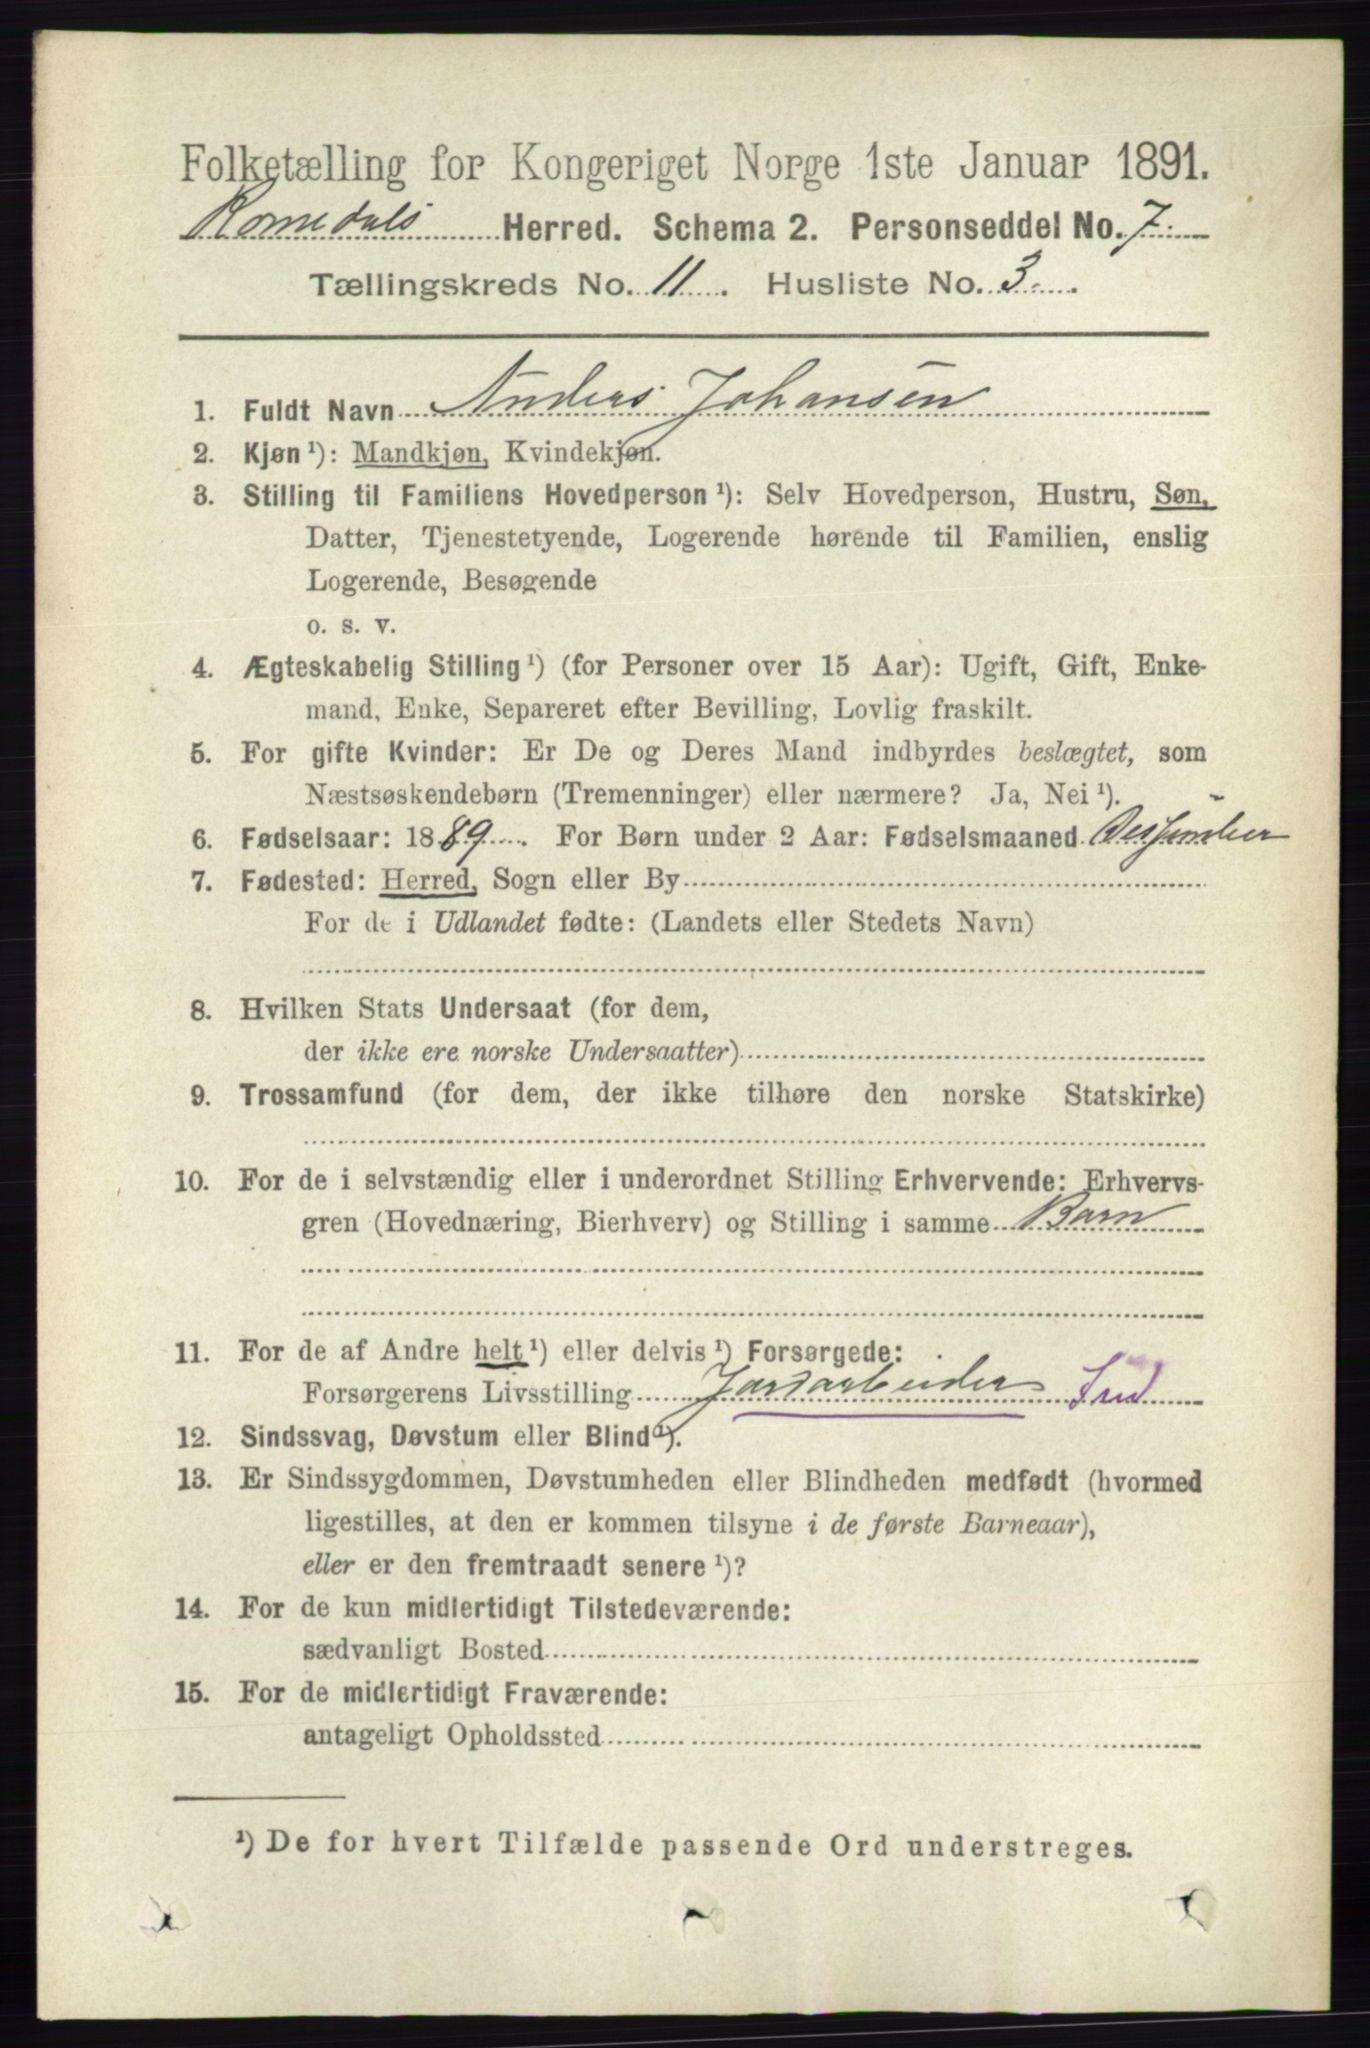 Folketælling for Kongeriget Norge 1ste Januar 1891.
Romedals Herred. Schema 2. Personseddel No. 7
Tællingskreds No. 11. Husliste No. 3.
1. Fuldt Navn Anders Johansen
2. Kjøn ¹): Mandkjøn, Kvindekjøn.
3. Stilling til Familiens Hovedperson ¹): Selv Hovedperson, Hustru, Søn,
Datter, Tjenestetyende, Logerende hørende til Familien, enslig
Logerende, Besøgende
o. s. v.
4. Ægteskabelig Stilling ¹) (for Personer over 15 Aar): Ugift, Gift, Enke-
mand, Enke, Separeret efter Bevilling, Lovlig fraskilt.
5. For gifte Kvinder: Er De og Deres Mand indbyrdes beslægtet, som
Næstsøskendebørn (Tremenninger) eller nærmere? Ja, Nei ¹).
6. Fødselsaar: 1889. For Børn under 2 Aar: Fødselsmaaned
7. Fødested: Herred, Sogn eller By
For de i Udlandet fødte: (Landets eller Stedets Navn)
8. Hvilken Stats Undersaat (for dem,
der ikke ere norske Undersaatter)
9. Trossamfund (for dem, der ikke tilhøre den norske Statskirke)
10. For de i selvstændig eller i underordnet Stilling Erhvervende: Erhvervs-
gren (Hovednæring, Bierhverv) og Stilling i samme Barn
11. For de af Andre helt ¹) eller delvis ¹) Forsørgede:
Forsørgerens Livsstilling Jordarbeider
12. Sindssvag, Døvstum eller Blind ¹).
13. Er Sindssygdommen, Døvstumheden eller Blindheden medfødt (hvormed
ligestilles, at den er kommen tilsyne i de første Barneaar),
eller er den fremtraadt senere ¹)?
14. For de kun midlertidigt Tilstedeværende:
sædvanligt Bosted
15. For de midlertidigt Fraværende:
antageligt Opholdssted
¹) De for hvert Tilfælde passende Ord understreges.